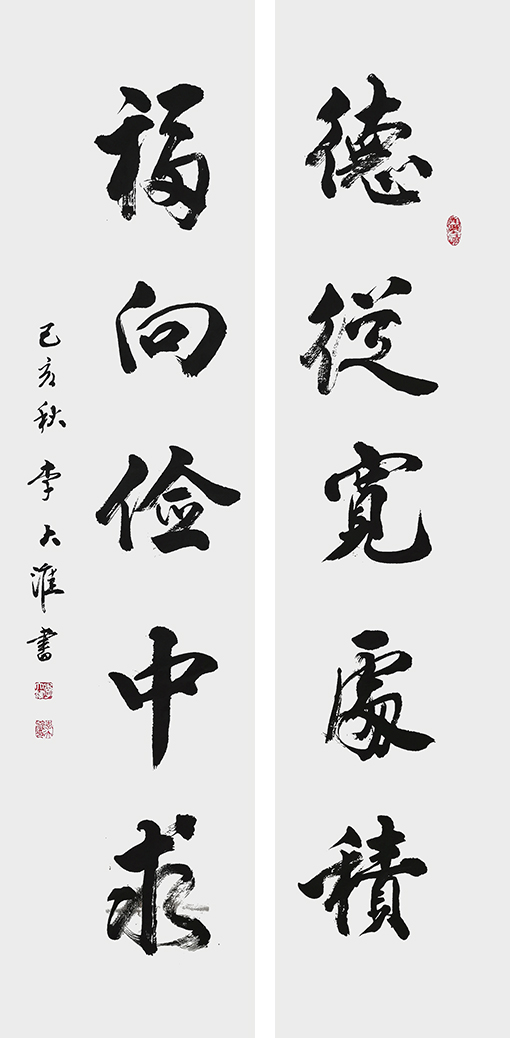 德從寬處積
福向儉中求
己亥秋 李大淮書